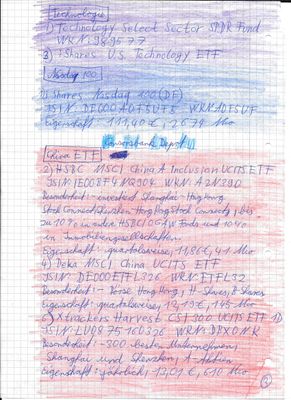 Technologie
1) Technology Select Sector SPDR Fund
WKN: 989577
3) iShares U.S. Technology ETF
Nasdaq 100
1) iShares Nasdaq 100 (DE)
ISIN DE000A0F5UF5 WKN A0F5UF
Eigenschaft: 111,40€, 2679 Mio
Consorsbank Depot
China ETF
2) HSBC MSCI China A Inclusion UCITS ETF
ISIN: IE00BF4NQ904 WKN: A2N290
Besonderheit: - investiert Shanghai - Hong Kong
Stock Connect, Shenzhen Hong Kong Stock Connect, bis
zu 10% in andere HSBC/OGAW Fonds und 10%
in Immobiliengesellschaften
Eigenschaft: quartalsweise, 11,86€, 41 Mio
4) Deka MSCI China UCITS ETF
ISIN: DE000ETFL326 WKN: ETFL32
Besonderheit: - Börse Hong Kong, H-Shares, B-Shares
Eigenschaft: quartalsweise, 145 Mio
6) Xtrackers Harvest CSI 300 UCITS ETF 1D
ISIN: LU0875160326 WKN: DBX0NK
Besonderheit: - 300 besten Unternehmen,
Shanghai und Shenzhen, A-Aktien
Eigenschaft: jährlich, 13,01€, 610 Mio